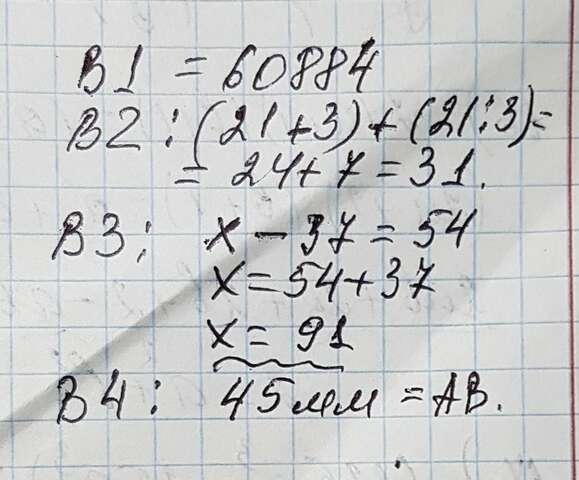 В1 = 60884
В2: (21+3)+(21:3)=
= 24+7=31.
В3; х - 37 = 54
х=54+37
х = 91
В4: 45мм = АВ.